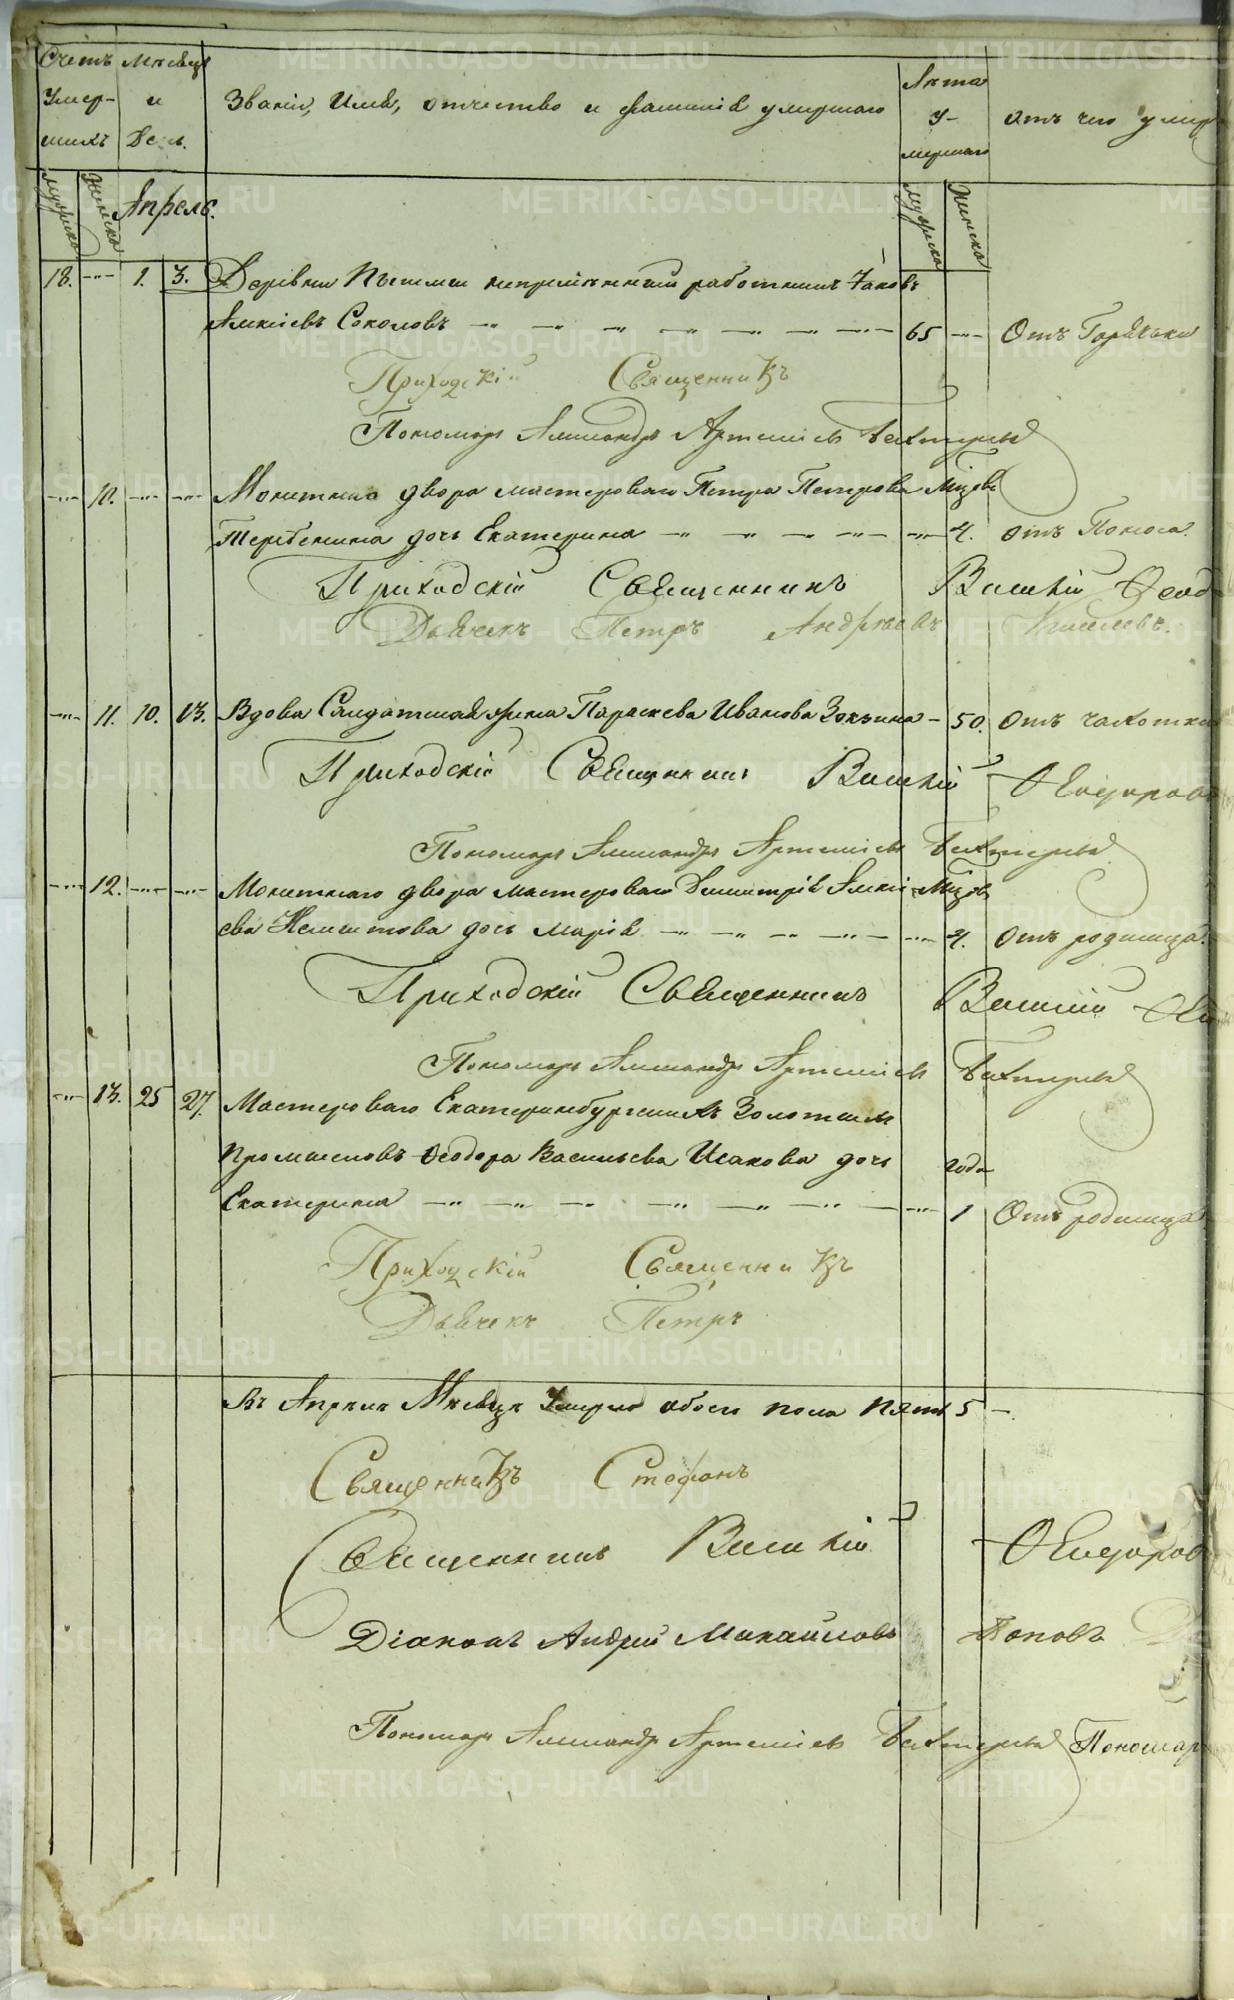 Счетъ умершихъ
Мѣсяцъ и день.
Званіе, имя, отчество и фамилія умершаго
Лѣта умершаго
Отъ чего умер
мужеска
женска
Апрель.
мужеска
женска
18. 1. 3. Деревни Пышмы непремѣнный работникъ Іаковъ
Алексѣевъ Соколовъ 65 Отъ Горячьки
Приходскій Священникъ
Пономарь Александръ Артеміевъ
10. Монетнаго двора мастероваго Петра Петрова
дочь Екатерина 4. отъ Поноса.
Приходскій Священникъ
Дьячекъ Петръ Андреевъ Киселевъ.
11. 10. 13. Вдова Салдатская жена Параскева Иванова 50. Отъ чахотки
Приходскій Священникъ
Пономарь Александръ Артеміевъ
12. Монетнаго двора мастероваго Димитрія Алексі
ева дочь Марія 4. Отъ родимца.
Приходскій Священникъ
Пономарь Александръ Артеміевъ
13. 25 27. Мастероваго Екатеринбургскихъ Золотыхъ
Промысловъ Ѳеодора Васильева Исакова дочь года
Екатерина 1 Отъ родимца
Приходскій Священникъ
Дьячекъ Петръ
Въ Апрѣлѣ Мѣсяцѣ Умерло обоего пола Пять 5
Священникъ Стефанъ
Священникъ
Діаконъ Андрей Михайловъ Поповъ
Пономарь Александръ Артеміевъ Пономарь
METRIKI.GASO-URAL.RU